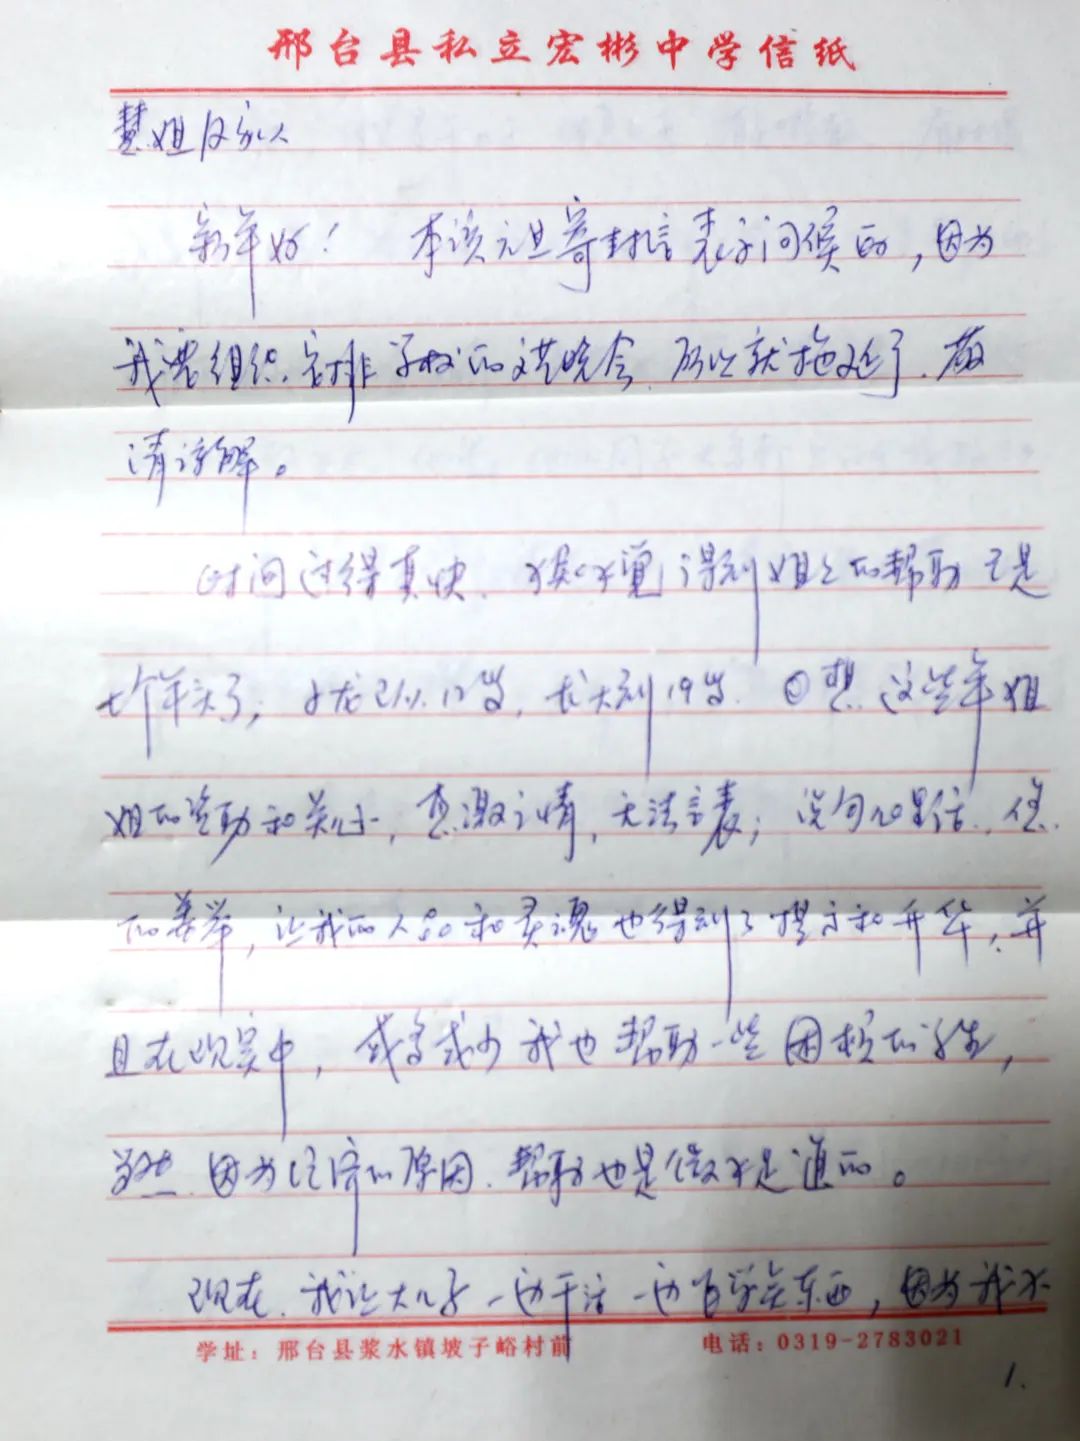 邢台县私立宏彬中学信纸
慧姐及家人
新年好！ 本该元旦寄封信表示问候的，因为
我要组织、安排学校的文艺晚会，所以就拖延了，敬
请谅解。
时间过得真快，不知不觉得到姐姐的帮助已是
七个年头了，小龙已从12岁，长大到19岁。回想这些年姐
姐的资助和关心，感激之情，无法言表；说句心里话，您
的善举，让我的人品和灵魂也得到了提升和升华，并
且在现实中，或多或少我也帮助一些困难的学生，
当然，因为经济的原因，帮助也是微不足道的。
现在，我让大儿子一边干活一边自学些东西，因为我不
学址：邢台县浆水镇坡子峪村前 电话：0319-2783021
1.